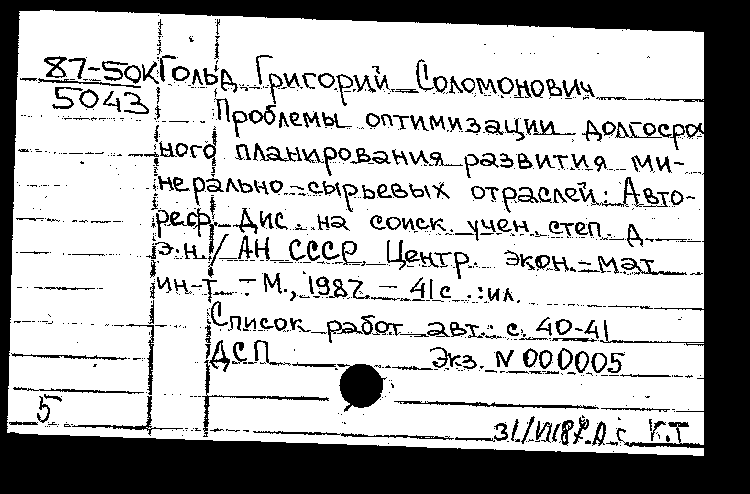 87-50К Гольд Григорий Соломонович
5043
Проблемы оптимизации долгосроч
ного планирования развития ми-
нерально-сырьевых отраслей: Авто-
реф. Дис. на соиск. учен. степ. д
э.н. / АН СССР. Центр. экон.-мат
ин-т. - М., 1987. - 41 с.: ил.
Список работ авт.: с. 40-41
ДСП Экз. N 000005
5
К.Т